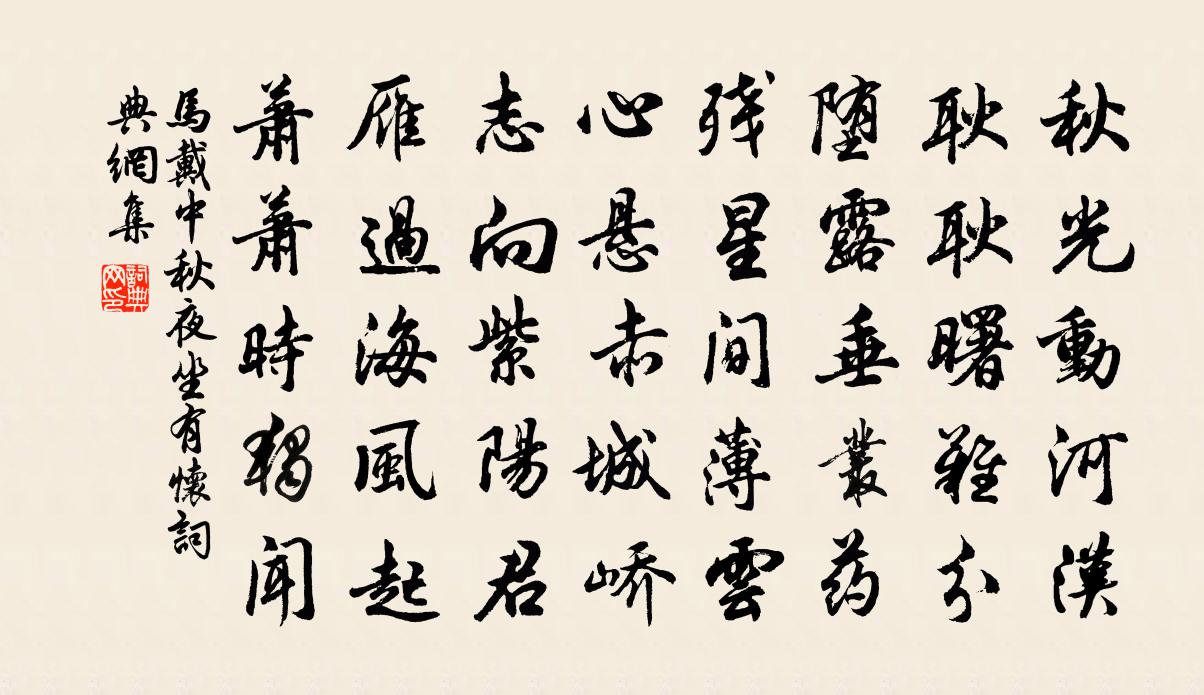 秋光動河漢
耿耿曙難分
堕露垂叢药
残星间薄雲
心悬赤城峤
志向紫陽君
雁過海風起
蕭蕭時獨聞
馬戴中秋夜坐有懷詞
典網集
詞典
网印